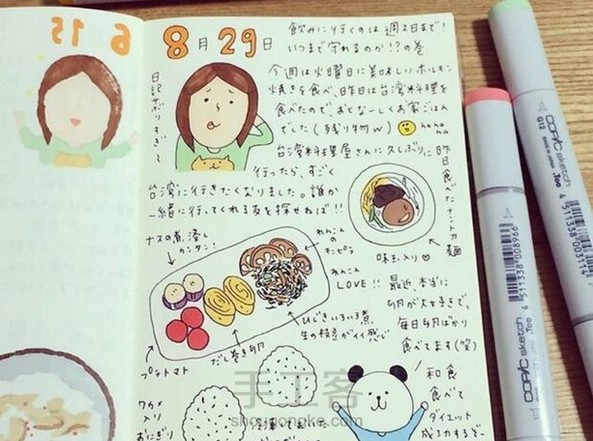 6 15
8月29日
飲みに行くのは週2日まで!
いつまで守れるのか!?の巻
今週は火曜日に美味しいホルモン
焼きを食べ、昨日は台湾料理を
食べたので、おとなーしくお家ごはん
でした(残り物w) hahaha
台湾料理屋さんに久しぶりに
行ったら、すごく
台湾に行きたくなりました。誰か
一緒に行ってくれる友を探せねば!!
日記サボりすぎ〜
昨日食べた
麺
味玉入り♡
ナスの煮浸し
カンタン!
れんこん
の
キンピラ
れんこん
LOVE!!
ひじきいろいろ煮
生の枝豆がイイ感じ
だし巻き卵
プチトマト
最近、本当に
卵が大好きで、
毎日卵ばかり
食べてます(笑)
ワカメ
入り
おにぎり
和食
食べて
ダイエット
成功するぞ
手工客
shougongke.com
COPIC sketch
.Too
4 511338 008966
COPIC sketch
G12
.Too
4 511338 003114